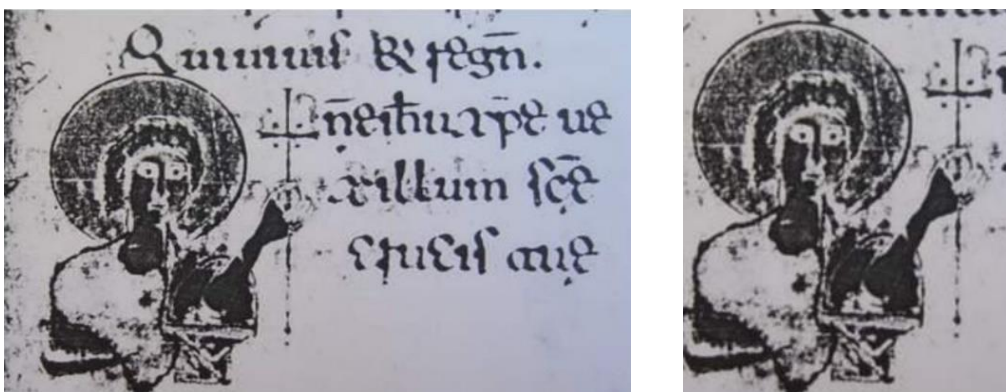 Qui uiuis & regn̄.
n̄e ih̄u xp̄e ue
xillum sc̄e
crucis